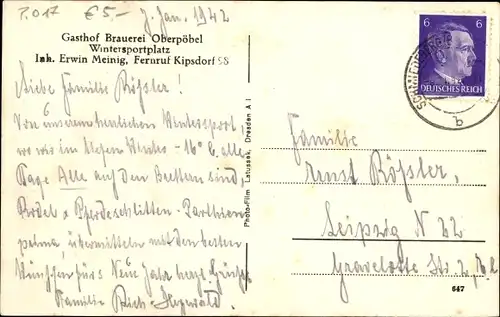 P.017 €5.- 7. Jan. 1942
Gasthof Brauerei Oberpöbel
Wintersportplatz
Inh. Erwin Meinig, Fernruf Kipsdorf 58
Liebe Familie Rößler!
Von unserm herrlichen Wintersport-
wo wir im tiefen Winter -16° C, alle
Tage Alle auf den Brettern sind
Rodel & Pferdeschlitten-Parthien
übermitteln mit den besten
Wünschen fürs Neue Jahr herzl. Grüße
Familie
Photo-Film-Latussek, Dresden A 1
6 6
DEUTSCHES REICH
b
Familie
Ernst Rößler,
Leipzig N 22
Gravelotte Str. 2
647